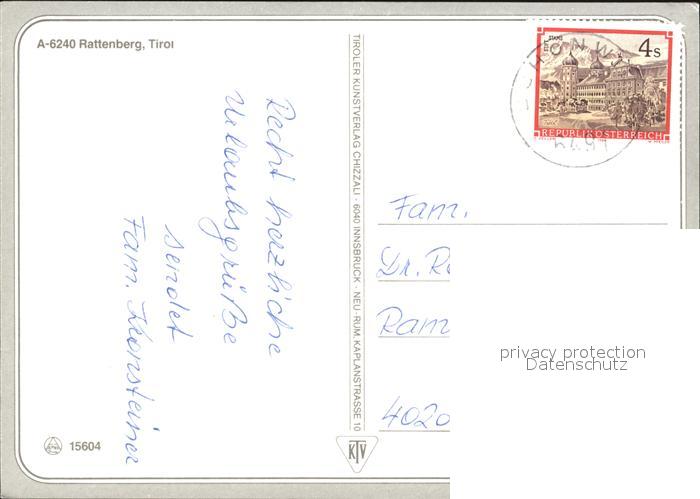 A-6240 Rattenberg, Tirol
Recht herzliche
Urlaubsgrüße
sendet
Fam.
15604
TIROLER KUNSTVERLAG CHIZZALI · 6040 INNSBRUCK · NEU-RUM, KAPLANSTRASSE 10
KTV
STIFT STAMS
4s
REPUBLIK ÖSTERREICH
Fam.
Dr.
4020
privacy protection
Datenschutz